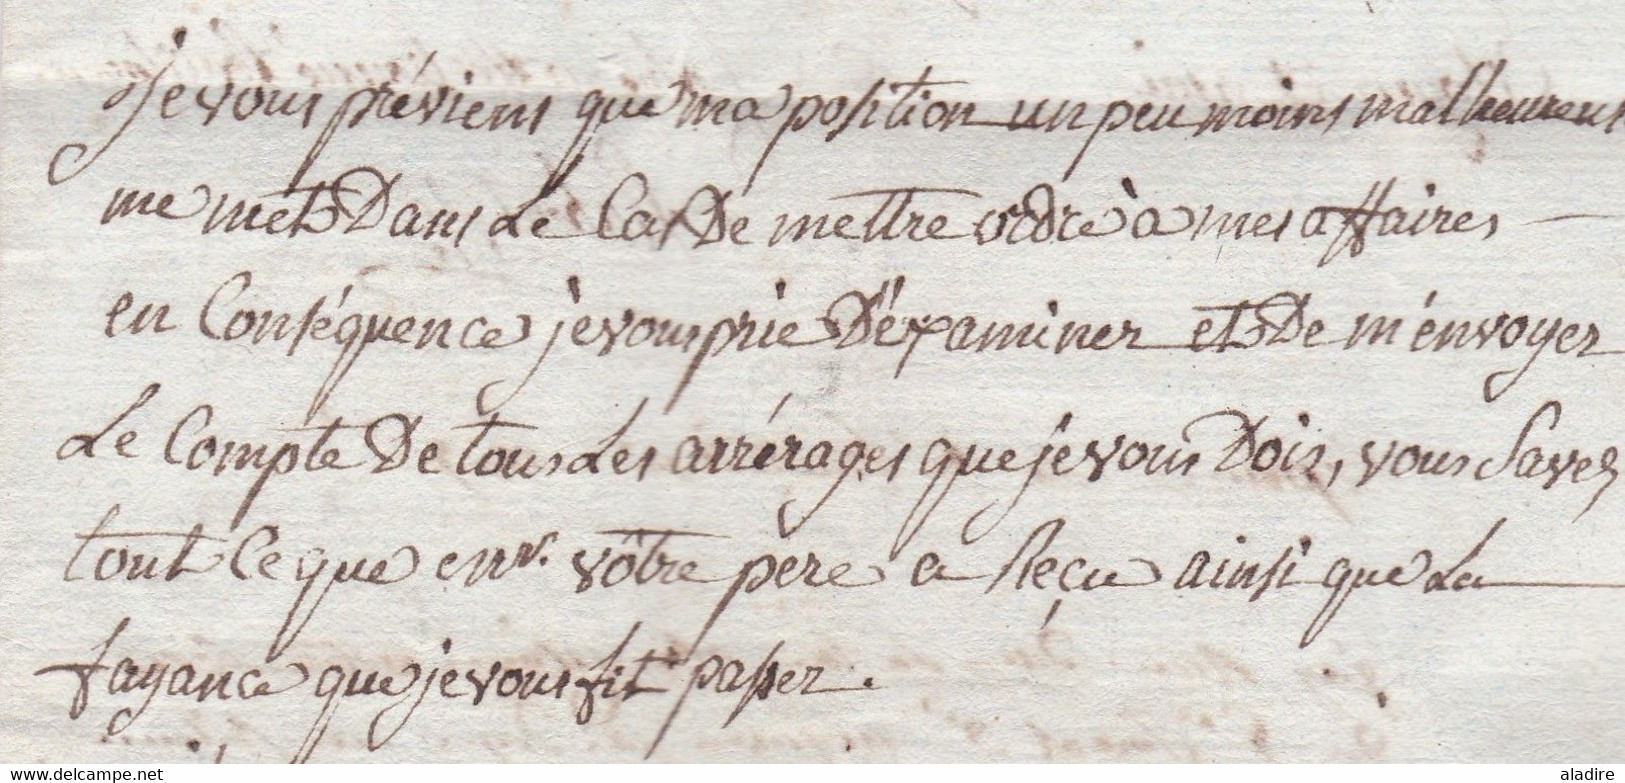 Je vous préviens que ma position un peu moins malheureus
me met Dans Le Cas De mettre ordre à mes affaires
en Conséquence je vous prie D'éxaminer et De m'énvoyer
Le Compte De tous Les arrérages que je vous Dois, vous Savez
tout Ce que vôtre pere a Reçu ainsi que La
fayance que je vous fit passer.
www.delcampe.net
aladire